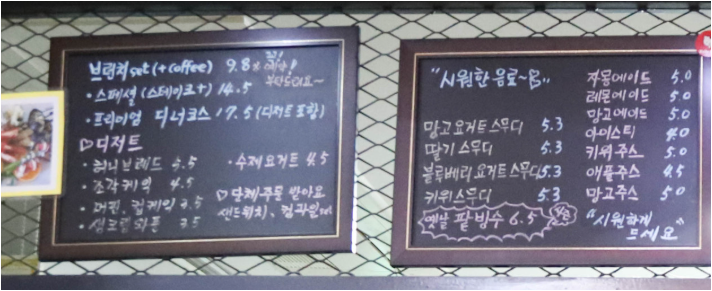 브런치set(+coffee) 9.8
· 스페셜 (스테이크+) 14.5
· 프리미엄 디너코스 17.5 (디저트 포함)
♡디저트
· 허니브레드 5.5
· 수제요거트 4.5
· 조각케익 4.5
· 머핀, 컵케익 3.5
3.5
♡단체주문 받아요
샌드위치, 컵과일set
"시원한 음료~
망고요거트스무디 5.3
딸기 스무디 5.3
블루베리요거트스무디 5.3
키위스무디 5.3
옛날 팥빙수 6.5
자몽에이드 5.0
레몬에이드 5.0
망고에이드 5.0
아이스티 4.0
키위주스 5.0
애플주스 4.5
망고주스 5.0
"시원하게
드세요"